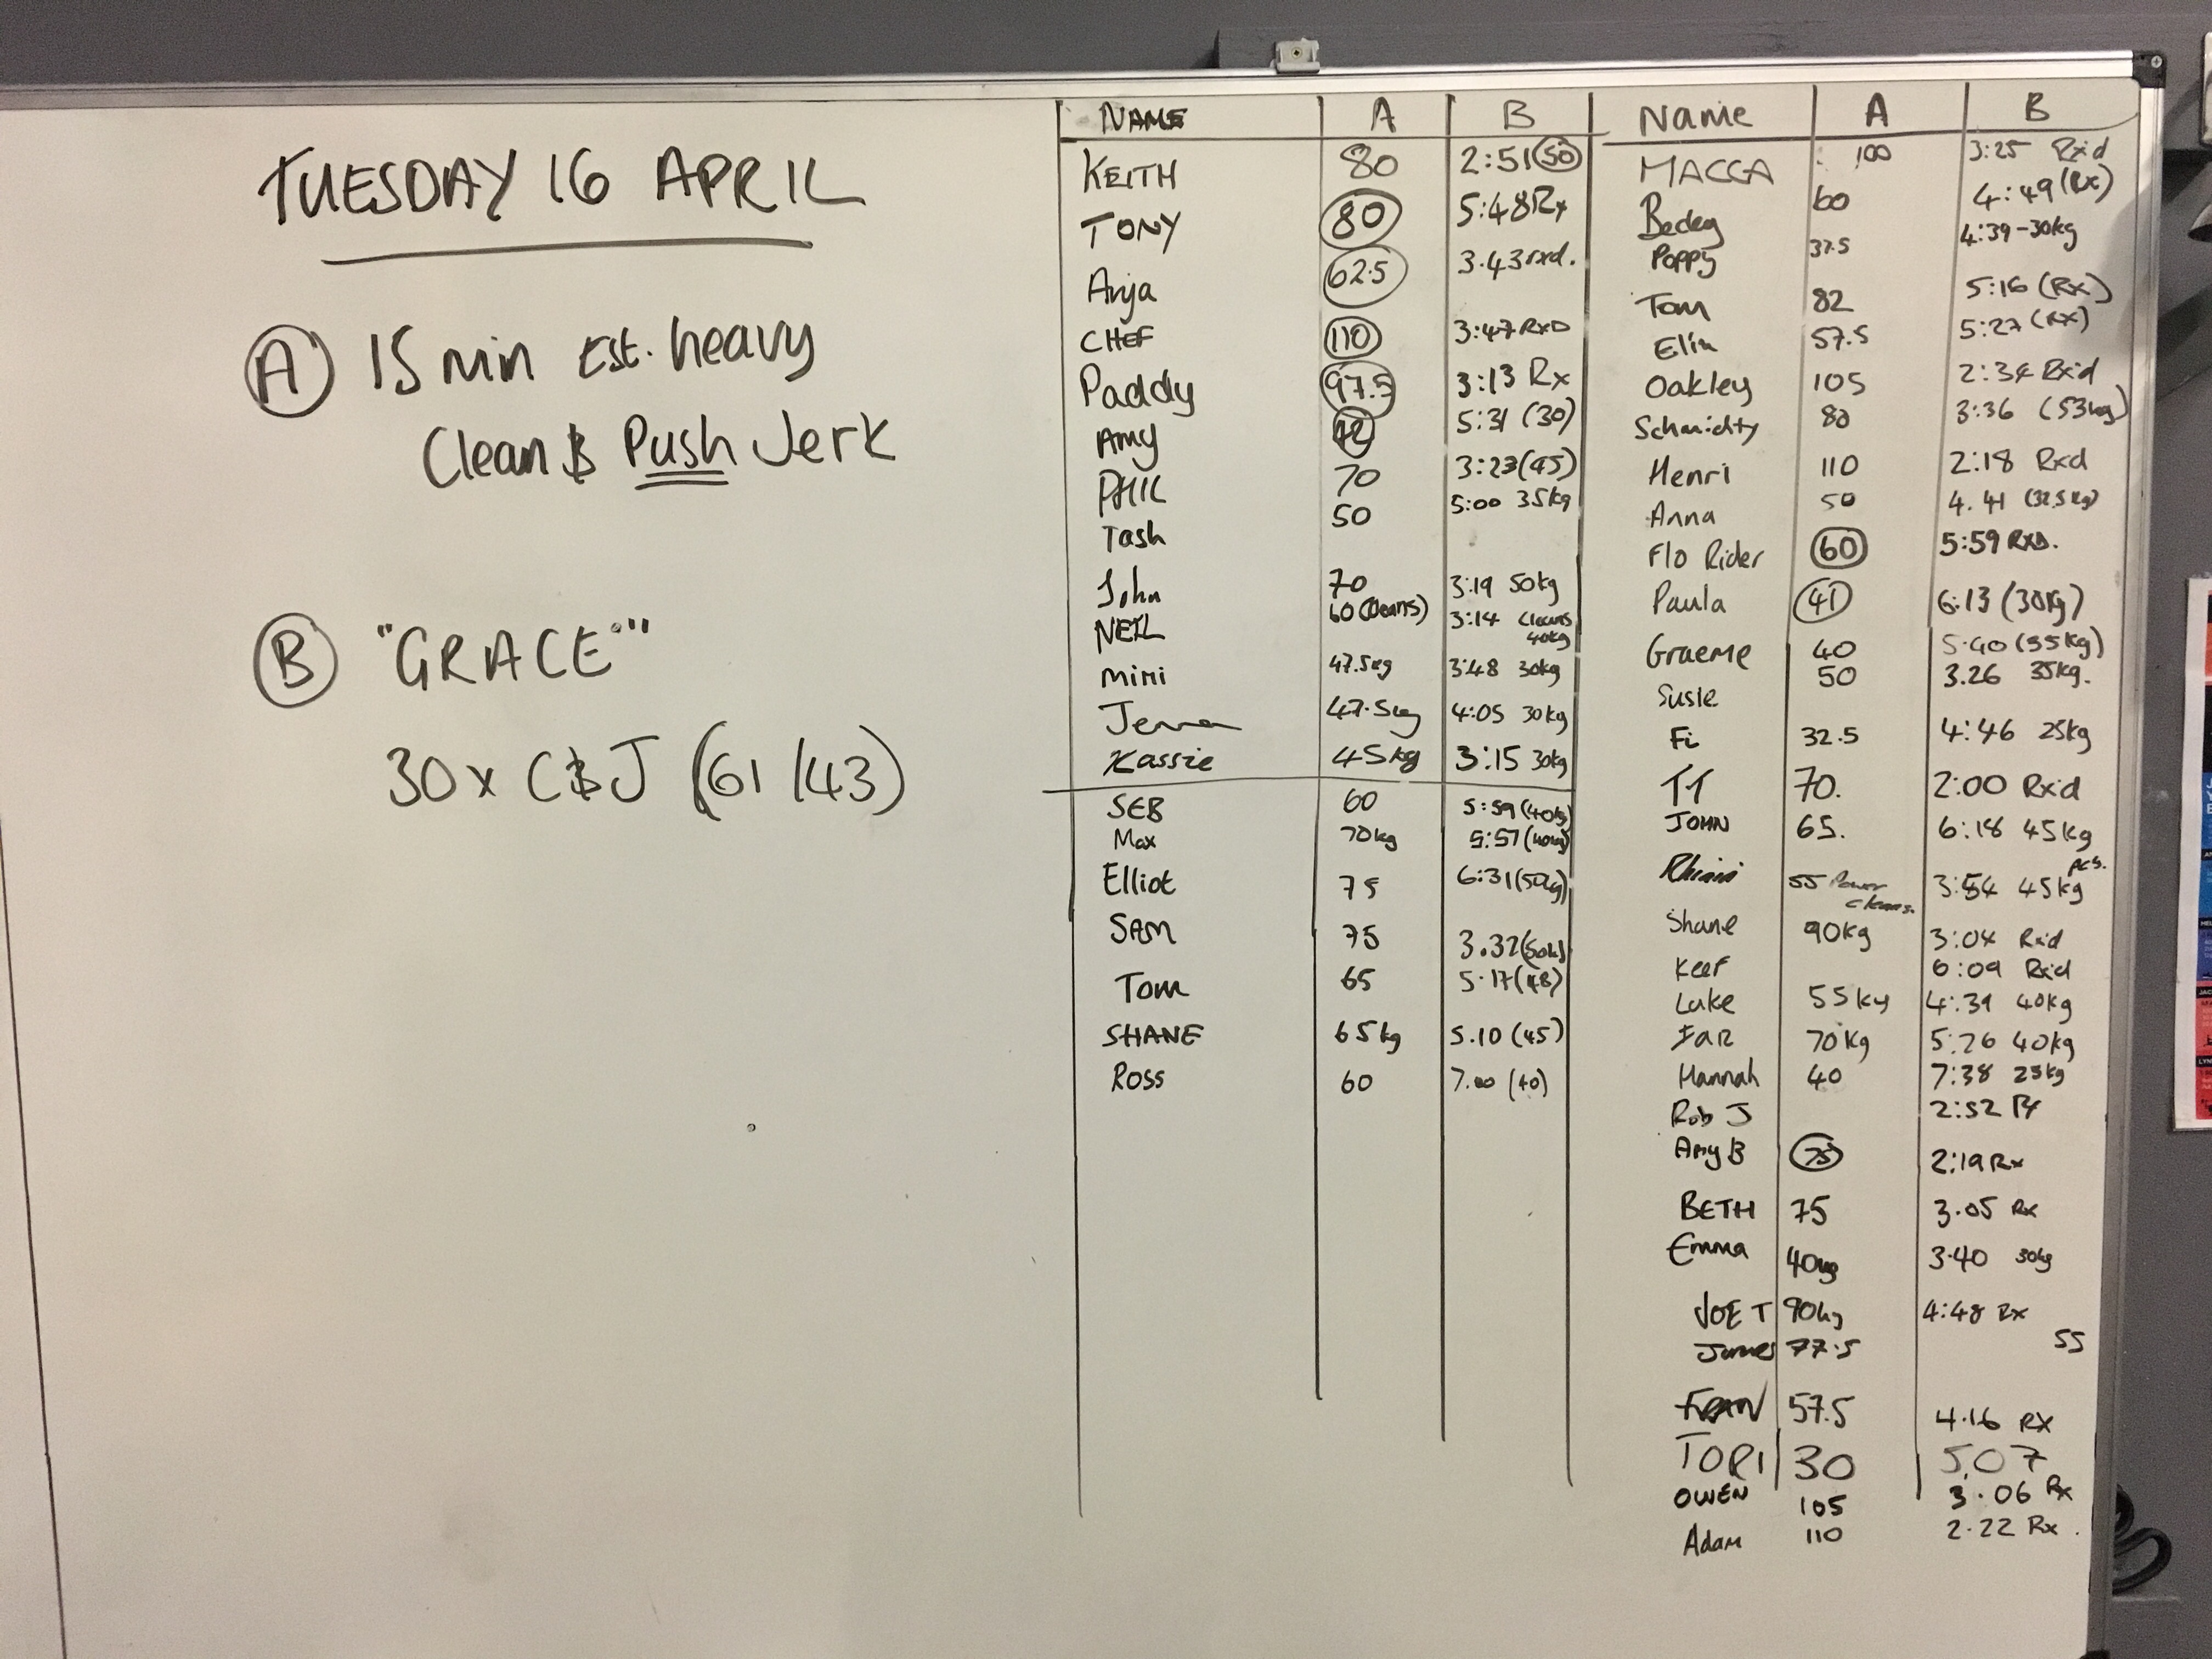 TUESDAY 16 APRIL
(A) 15 min Est. heavy
Clean & Push Jerk
(B) "GRACE"
30 x C&J (61/43)
NAME A B
KEITH 80 2:51 (50)
TONY 80 5:48 Rx
Anja 62.5 3.43 rxd.
CHEF 110 3:47 RXD
Paddy 97.5 3:13 Rx
Amy 42 5:31 (30)
PHIL 70 3:23 (45)
Tash 50 5:00 35kg
John 70 3:19 50kg
NEIL 60 (Cleans) 3:14 cleans 40kg
mimi 47.5kg 3:48 30kg
Jenna 47.5kg 4:05 30kg
Kassie 45kg 3:15 30kg
SEB 60 5:59 (40kg)
Max 70kg 5:57 (40kg)
Elliot 75 6:31 (50kg)
SAM 75 3.32 (50kg)
Tom 65 5.17 (48)
SHANE 65kg 5.10 (45)
Ross 60 7.00 (40)
Name A B
MACCA 100 3:25 Rx'd
Bedeg 60 4:49 (Rx)
Poppy 37.5 4:39-30kg
Tom 82 5:16 (Rx)
Elin 57.5 5:27 (RX)
Oakley 105 2:34 Rx'd
Schmidty 80 3:36 (53kg)
Henri 110 2:18 Rxd
Anna 50 4.41 (32.5kg)
Flo Rider 60 5:59 RXD.
Paula 41 6:13 (30kg)
Graeme 40 5.40 (35kg)
Susie 50 3.26 35kg.
Fi 32.5 4:46 25kg
TT 70. 2:00 Rx'd
JOHN 65. 6:18 45kg
55 Power cleans. 3:54 45kg pcs.
Shane 90kg 3:04 Rx'd
Keef 6:09 Rx'd
Luke 55kg 4:39 40kg
70kg 5:26 40kg
Hannah 40 7:38 25kg
Rob J 2:52
Amy B 75 2:19 Rx
BETH 75 3.05 Rx
Emma 40kg 3.40 30kg
JOE T 90kg 4:48 Rx
James 77.5 55
FRAN 57.5 4.16 RX
TORI 30 5.07
OWEN 105 3.06 Rx
Adam 110 2.22 Rx.